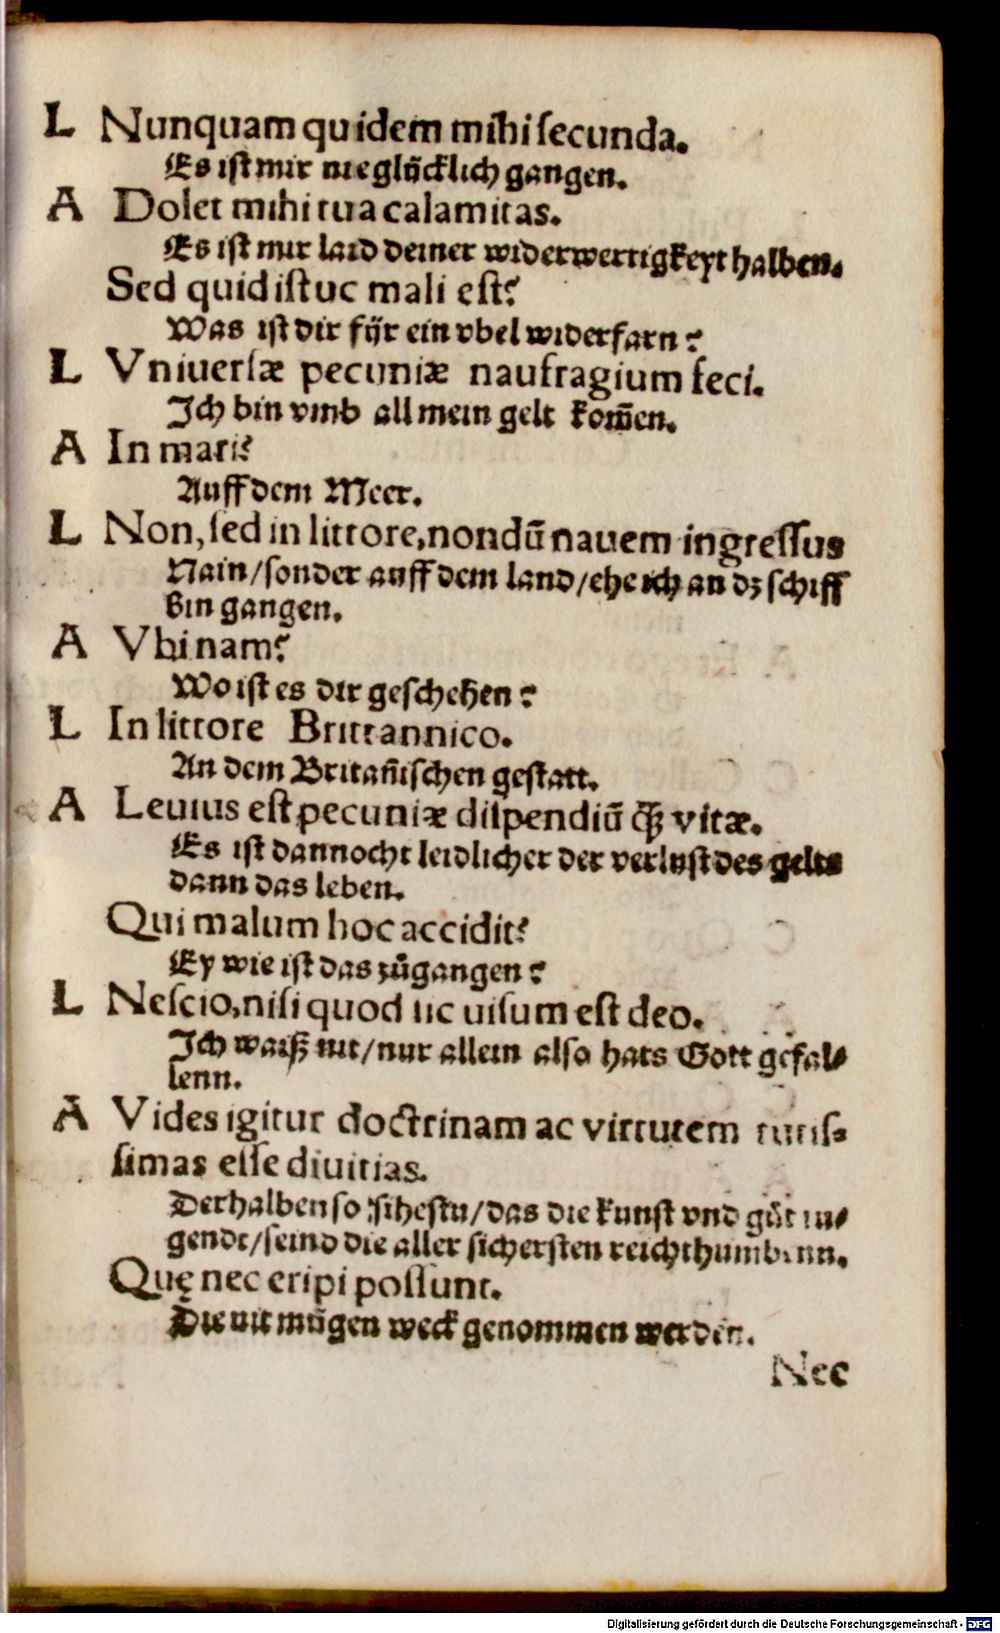 L Nunquam quidem mihi ſecunda.
Es iſt mir nie glücklich gangen.
A Dolet mihi tua calamitas.
Es iſt mir laid deiner widerwertigkeyt halben.
Sed quid iſtuc mali eſt?
Was iſt dir für ein vbel widerfarn?
L Vniuerſæ pecuniæ naufragium feci.
Ich bin vmb all mein gelt kom̄en.
A In mari?
Auff dem Meer.
L Non, ſed in littore, nondū nauem ingreſſus
Nain/ſonder auff dem land/ehe ich an dz ſchiff
bin gangen.
A Vbi nam?
Wo iſt es dir geſchehen?
L In littore Brittannico.
An dem Britan̄iſchen geſtatt.
A Leuius eſt pecuniæ diſpendiū qꝫ vitæ.
Es iſt dannocht leidlicher der verluſt des gelts
dann das leben.
Qui malum hoc accidit?
Ey wie iſt das zůgangen?
L Neſcio, niſi quod ſic uiſum eſt deo.
Ich waiß nit/nur allein alſo hats Gott gefal-
lenn.
A Vides igitur doctrinam ac virtutem tutiſ-
ſimas eſſe diuitias.
Derhalben so ſiheſtu/das die kunſt vnd gůt tu-
gendt/ſeind die aller ſicherſten reichthumbenn.
Quę nec eripi poſſunt.
Die nit mügen weck genommen werden.
Nec
Digitalisierung gefördert durch die Deutsche Forschungsgemeinschaft - DFG